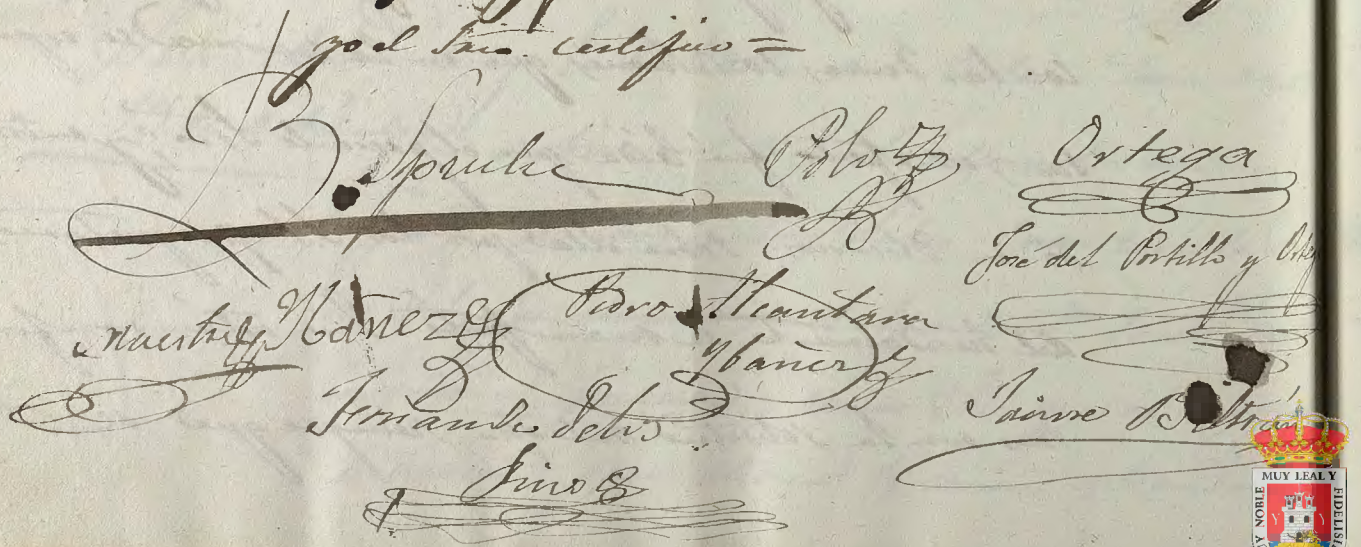 yo el Srio. certifico =
B. Spruhe Polo Ortega
José del Portillo y Orte
Maestre Ybáñez Pedro Alcantara
Ybañez
Fernando Jaime Beltrán
MUY LEAL Y
FIDELIS
Y NOBLE